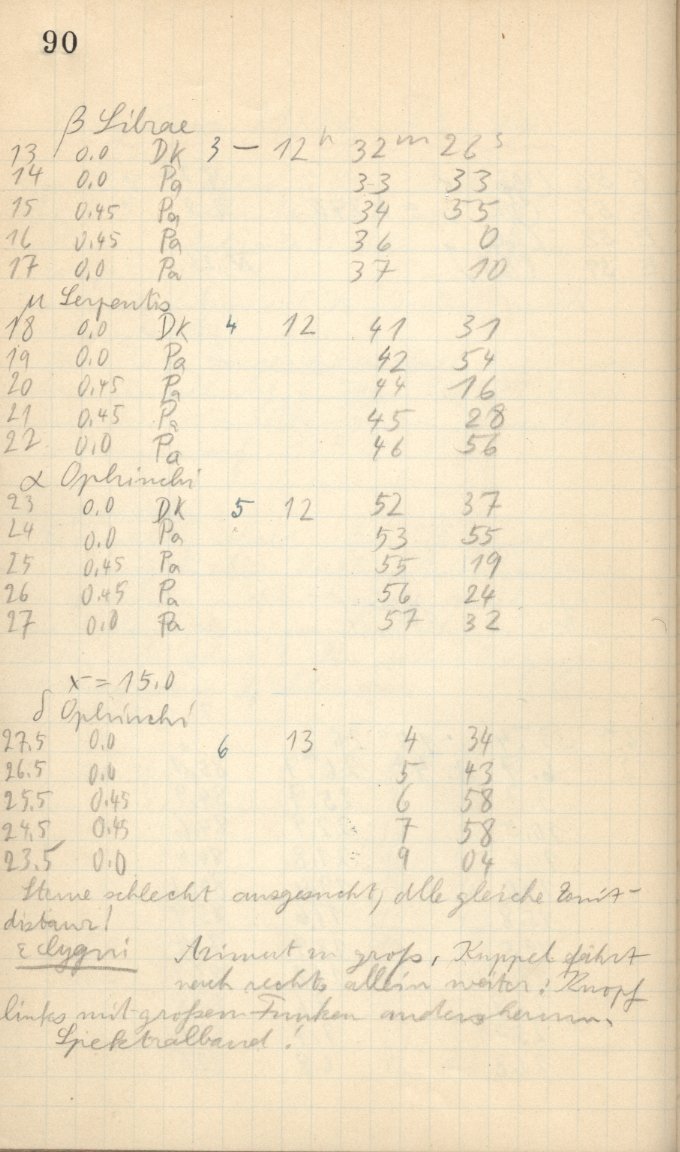 90
β Librae
13 0.0 DK 3 – 12h 32m 26s
14 0.0 Pa 33 33
15 0.45 Pa 34 55
16 0.45 Pa 36 0
17 0.0 Pa 37 10
μ Serpentis
18 0.0 DK 4 12 41 31
19 0.0 Pa 42 54
20 0.45 Pa 44 16
21 0.45 Pa 45 28
22 0.0 Pa 46 56
α Ophiuchi
23 0.0 DK 5 12 52 37
24 0.0 Pa 53 55
25 0.45 Pa 55 19
26 0.45 Pa 56 24
27 0.0 Pa 57 32
x = 15.0
δ Ophiuchi
27.5 0.0 6 13 4 34
26.5 0.0 5 43
25.5 0.45 6 58
24.5 0.45 7 58
23.5 0.0 9 04
Sterne schlecht ausgesucht, alle gleiche Zenit-
distanz!
ε Cygni Azimut zu groß, Kuppel fährt
nach rechts allein weiter! Knopf
links mit großem Funken andersherum.
Spektralband!